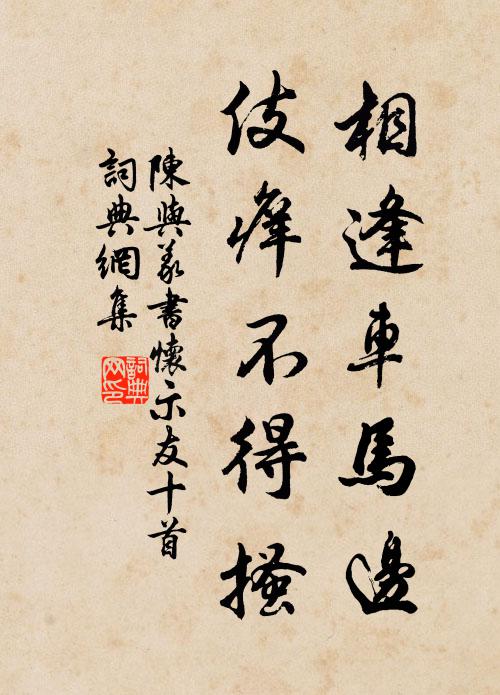 相逢車馬邊
伎癢不得搔
陳與義書懷示友十首
詞典網集
詞典網印